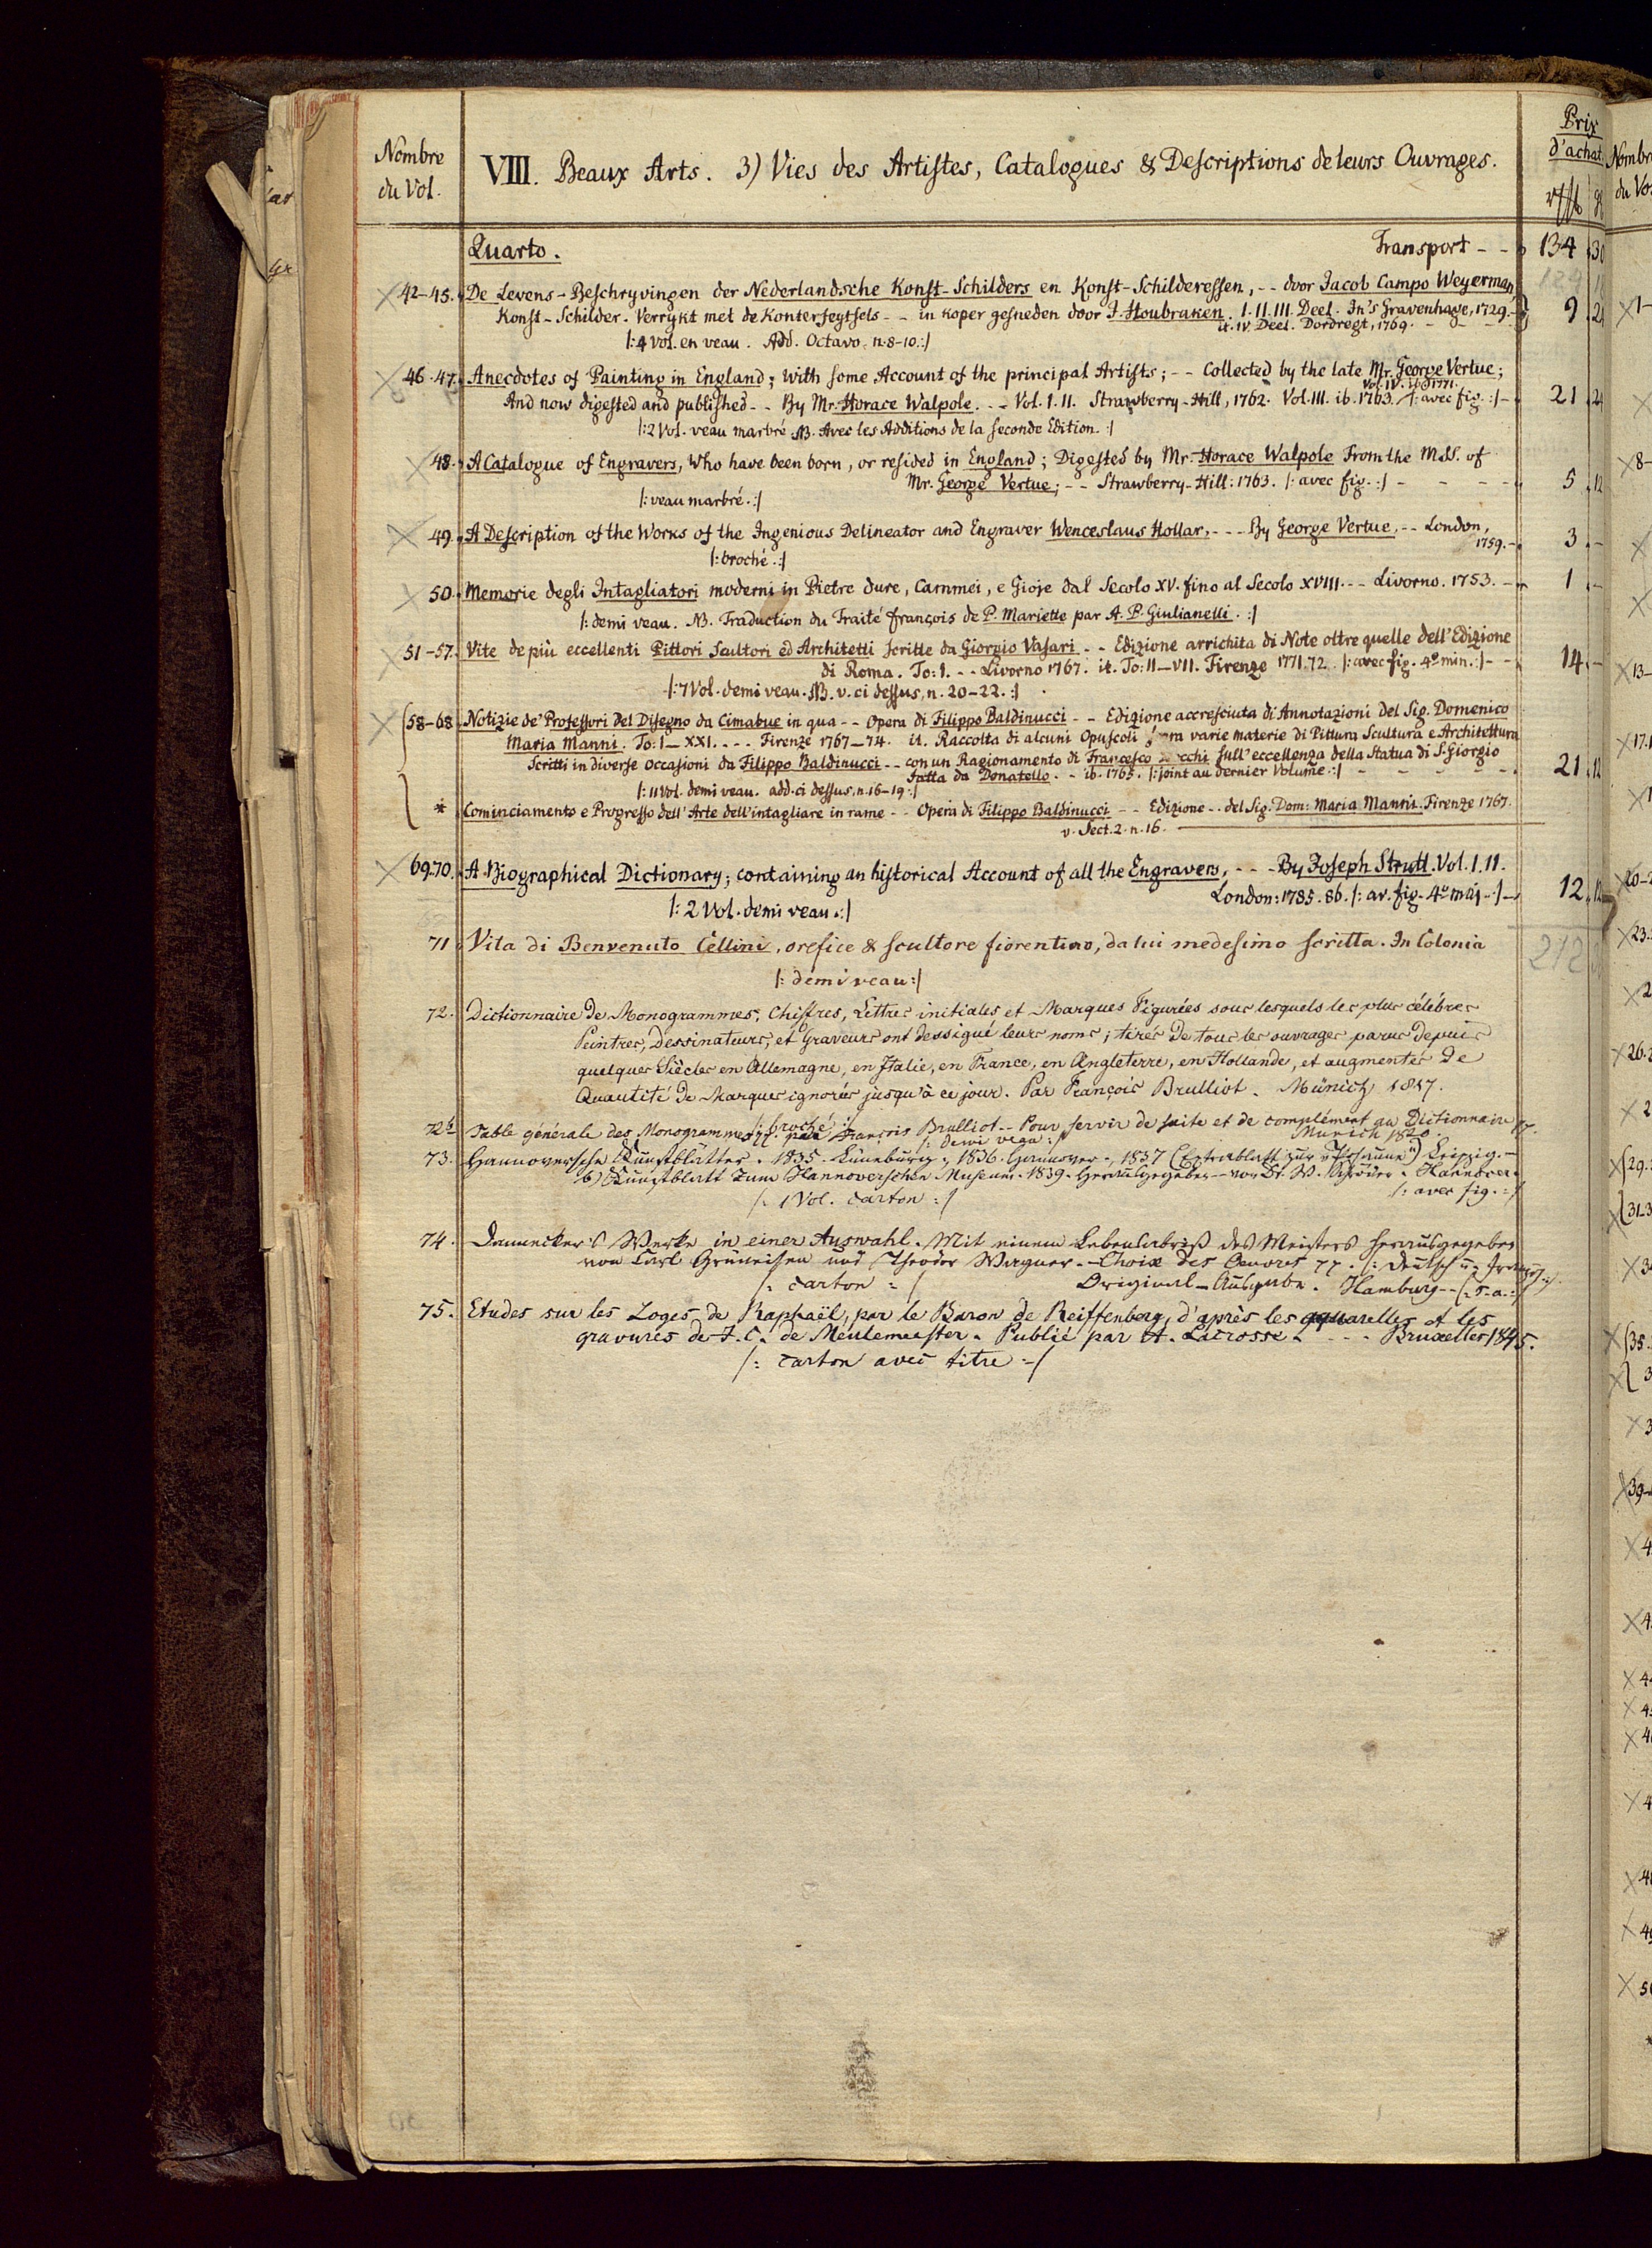 Nombre du Vol.
VIII. Beaux Arts. 3) Vies des Artiſtes, Catalogues & Deſcriptions de leurs Ouvrages.
Prix d'achat.
Quarto. Transport - - 134 30
42-45. De Levens-Beſchryvingen der Nederlandsche Konſt-Schilders en Konſt-Schildereſſen, - - door Jacob Campo Weyerman,
Konſt-Schilder. Verrykt met de Konterfeytſels - - in koper gesneden door J. Houbraken. I. II. III. Deel. In's Gravenhage, 1729. 9 24
it. IV. Deel. Dordregt, 1769.
|: 4 Vol. en veau. Add. Octavo. n. 8-10. :|
46.47. Anecdotes of Painting in England; With ſome Account of the principal Artiſts; - - Collected by the late Mr. George Vertue;
Vol. IV. ib. 1771.
And now digested and published - - By Mr. Horace Walpole. - - Vol. I. II. Strawberry-Hill, 1762. Vol. III. ib. 1763. |: avec fig. :| - 21 24
|: 2 Vol. veau marbré NB. Avec les Additions de la ſeconde Edition. :|
48. A Catalogue of Engravers, Who have been born, or reſided in England; Digeſted by Mr. Horace Walpole From the MSS. of
Mr. George Vertue; - - Strawberry-Hill: 1763. |: avec fig. :| - - - - 5 12
|: veau marbré. :|
49. A Deſcription of the Works of the Ingenious Delineator and Engraver Wenceslaus Hollar, - - - By George Vertue. - - London,
1759. - 3 -
|: broché. :|
50. Memorie degli Intagliatori moderni in Pietre dure, Cammei, e Gioje dal Secolo XV. fino al Secolo XVIII. - - Livorno. 1753. - 1 -
|: demi veau. NB. Traduction du Traité françois de P. Mariette par A. P. Giulianelli. :|
51-57. Vite de più eccellenti Pittori Scultori ed Architetti ſcritte da Giorgio Vaſari - - Edizione arrichita di Note oltre quelle dell'Edizione
di Roma. To: I. - - Livorno 1767. it. To: II-VII. Firenze 1771.72. |: avec fig. 4º min. :| - - 14 -
|: 7 Vol. demi veau. NB. v. ci deſſus, n. 20-22. :|
58-68. Notizie de' Profeſſori del Diſegno da Cimabue in qua - - Opera di Filippo Baldinucci - - Edizione accreſciuta di Annotazioni del Sig. Domenico
Maria Manni. To: I-XXI. - - - Firenze 1767-74. it. Raccolta di alcuni Opuſcoli varie materie di Pittura Scultura e Architettura
Scritti in diverſe occaſioni da Filippo Baldinucci - - con un Ragionamento di Francesco ſull'eccellenza della Statua di S. Giorgio
fatta da Donatello. - - ib. 1765. |: joint au dernier Volume. :| - - - - 21 12
|: 11 Vol. demi veau. add. ci deſſus, n. 16-19. :|
* Cominciamento e Progreſſo dell'Arte dell'intagliare in rame - - Opera di Filippo Baldinucci - - Edizione - - del Sig. Dom: Maria Manni. Firenze 1767.
v. Sect. 2. n. 16.
69.70. A Biographical Dictionary; containing an hiſtorical Account of all the Engravers, - - - By Joseph Strutt. Vol. I. II.
London: 1785. 86. |: av. fig. 4º maj. :| - 12 12
|: 2 Vol. demi veau. :|
71. Vita di Benvenuto Cellini, orefice & scultore fiorentino, da lui medesimo ſcritta. In Colonia
212
|: demi veau :|
72. Dictionnaire de Monogrammes, Chiffres, Lettres initiales et Marques Figurées sous lesquels les plus célèbres
Peintres, Dessinateurs, et Graveurs ont dessigné leurs noms; tirés de tous les ouvrages parus depuis
quelques Siècles en Allemagne, en Italie, en France, en Angleterre, en Hollande, et augmentés de
Quantité de Marques ignorés jusqu'à ce jour. Par François Brulliot. Münich 1817.
|: broché :|
72b Table générale des Monogrammes pp. par François Brulliot - - Pour ſervir de ſuite et de complément au Dictionnaire pp.
|: demi veau :| Munich 1820.
73. Hannoversche Kunstblätter. 1835. Lüneburg; 1836. Hannover, 1837 (Extrablatt zur "Posaune") Leipzig. -
b) Kunstblatt zum Hannoverschen Museum. 1839. Herausgegeben - - von Dr. W. Schröder. Hannover.
|: 1 Vol. carton :| |: avec fig. :|
74. Dannecker's Werke in einer Auswahl. Mit einem Lebensabriß des Meisters herausgegeben
von Carl Grüneisen und Theodor Wagner. - Choix des Oeuvres pp. |: deutsch u. französ. :|
|: carton :| Original-Ausgabe. Hamburg - - (s. a. :|
75. Etudes sur les Loges de Raphaël, par le Baron de Reiffenberg, d'après les aquarelles et les
gravures de J. C. de Meulemeester. Publié par A. Lacrosse. - - - Bruxelles 1845.
|: carton avec titre :|